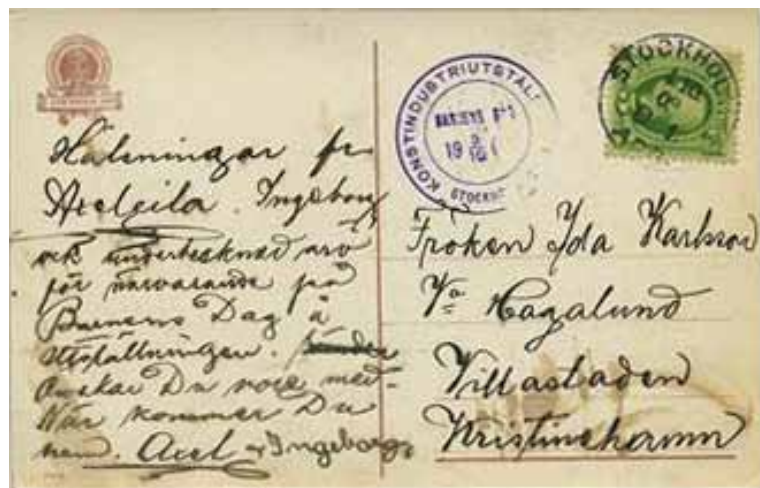 Hälsningar fr
Ingeborg
ock undertecknad
för närvarande på
Barnens Dag å
utställningen.
Önskar Du vore med.
När kommer Du
hem. Axel Ingeborg
KONSTINDUSTRIUTSTÄL
BARNENS
19
STOCKH
STOCKHOL
Fröken Ida Karlsson
Hagalund
Villastaden
Kristinehamn